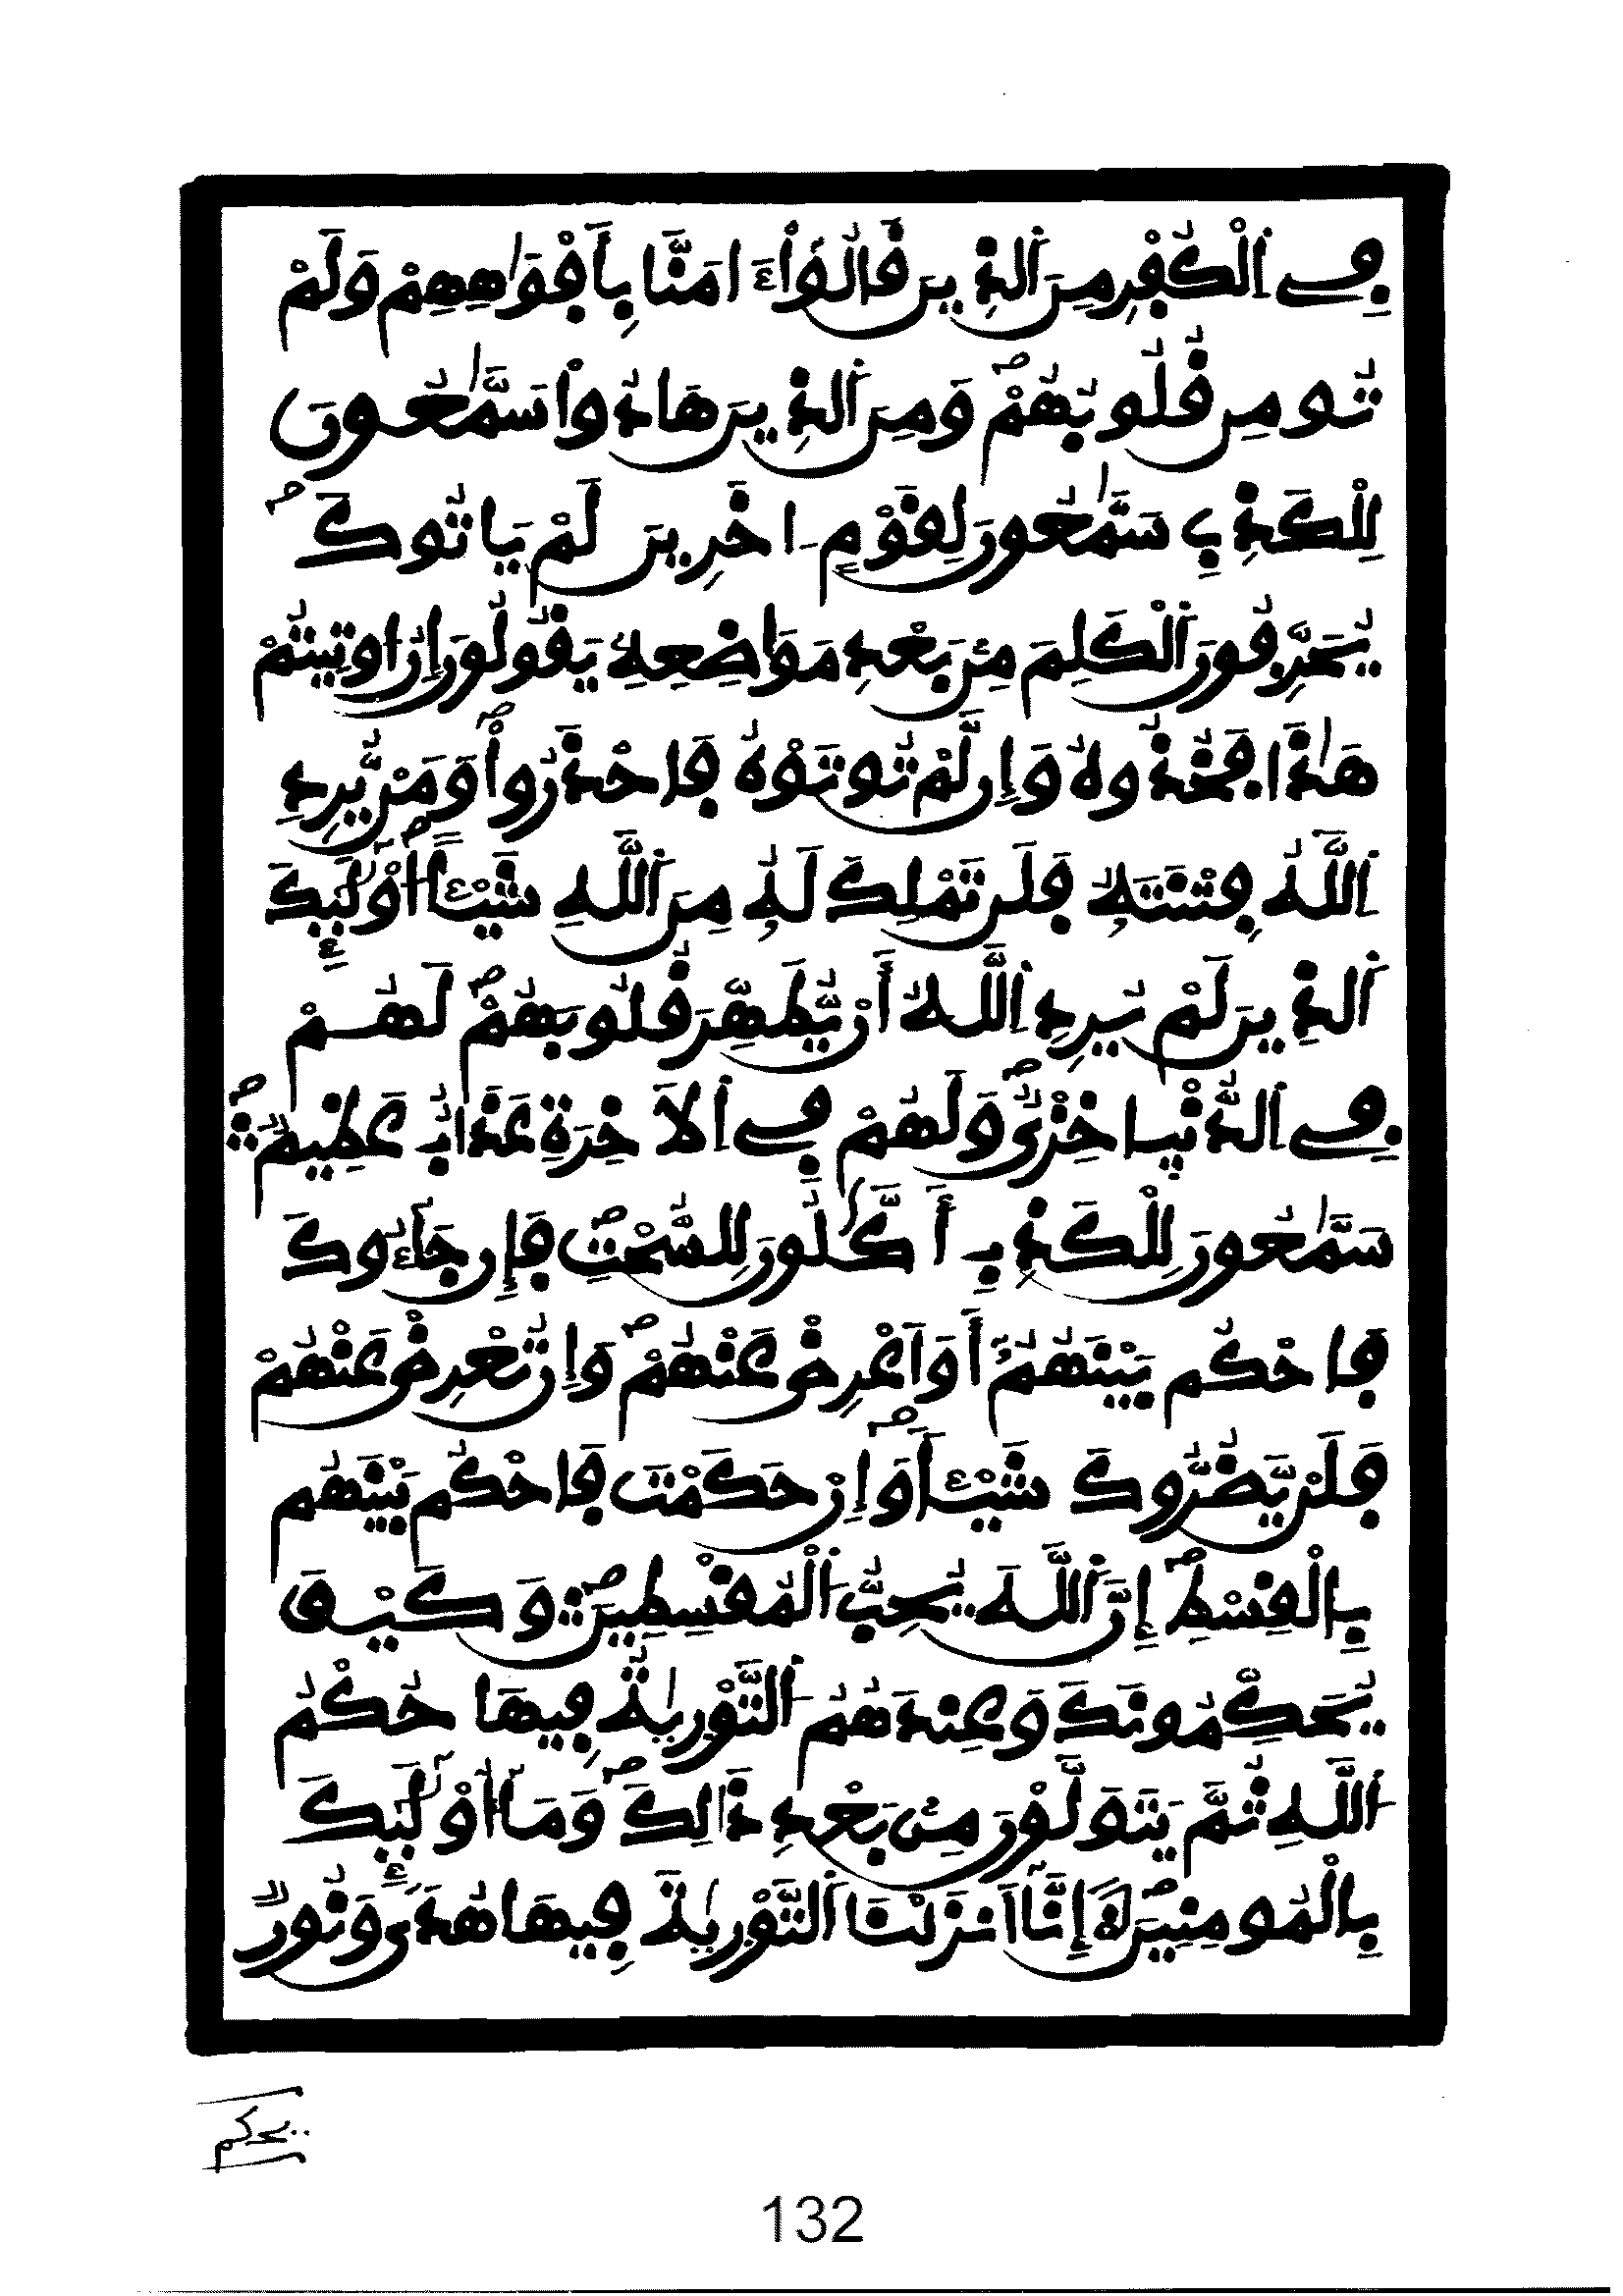 فِے اِ۬لْكُفْرِ مِنَ اَ۬لذِينَ قَالُوٓاْ ءَامَنَّا بِأَفْوَٰهِهِمْ وَلَمْ
تُومِن قُلُوبُهُمْ وَمِنَ اَ۬لذِينَ هَادُواْ سَمَّٰعُونَ
لِلْكَذِبِ سَمَّٰعُونَ لِقَوْمٍ اٰخَرِينَ لَمْ يَاتُوكَ
يُحَرِّفُونَ اَ۬لْكَلِمَ مِنۢ بَعْدِ مَوَاضِعِهِۦ يَقُولُونَ إِنُ اوتِيتُمْ
هَٰذَا فَخُذُوهُ وَإِن لَّمْ تُوتَوْهُ فَاحْذَرُواْ وَمَنْ يُّرِدِ
اِ۬للَّهُ فِتْنَتَهُۥ فَلَن تَمْلِكَ لَهُۥ مِنَ اَ۬للَّهِ شَيْـٔاً ا۟وْلَٰٓئِكَ
اَ۬لذِينَ لَمْ يُرِدِ اِ۬للَّهُ أَنْ يُّطَهِّرَ قُلُوبَهُمْ لَهُمْ
فِے اِ۬لدُّنْيا خِزْيٌ وَلَهُمْ فِے اِ۬لَاخِرَةِ عَذَابٌ عَظِيمٌ
سَمَّٰعُونَ لِلْكَذِبِ أَكَّٰلُونَ لِلسُّحْتِ فَإِن جَآءُوكَ
فَاحْكُم بَيْنَهُمُۥٓ أَوَ اَعْرِضْ عَنْهُمْ وَإِن تُعْرِضْ عَنْهُمْ
فَلَنْ يَّضُرُّوكَ شَيْـٔاً وَإِنْ حَكَمْتَ فَاحْكُم بَيْنَهُم
بِالْقِسْطِ إِنَّ اَ۬للَّهَ يُحِبُّ اُ۬لْمُقْسِطِينَ وَكَيْفَ
يُحَكِّمُونَكَ وَعِندَهُمُ اُ۬لتَّوْر۪يٰةُ فِيهَا حُكْمُ
اُ۬للَّهِ ثُمَّ يَتَوَلَّوْنَ مِنۢ بَعْدِ ذَٰلِكَ وَمَآ أُوْلَٰٓئِكَ
بِالْمُومِنِينَ إِنَّآ أَنزَلْنَا اَ۬لتَّوْر۪يٰةَ فِيهَا هُدىً وَنُورٌ
يحكم
132